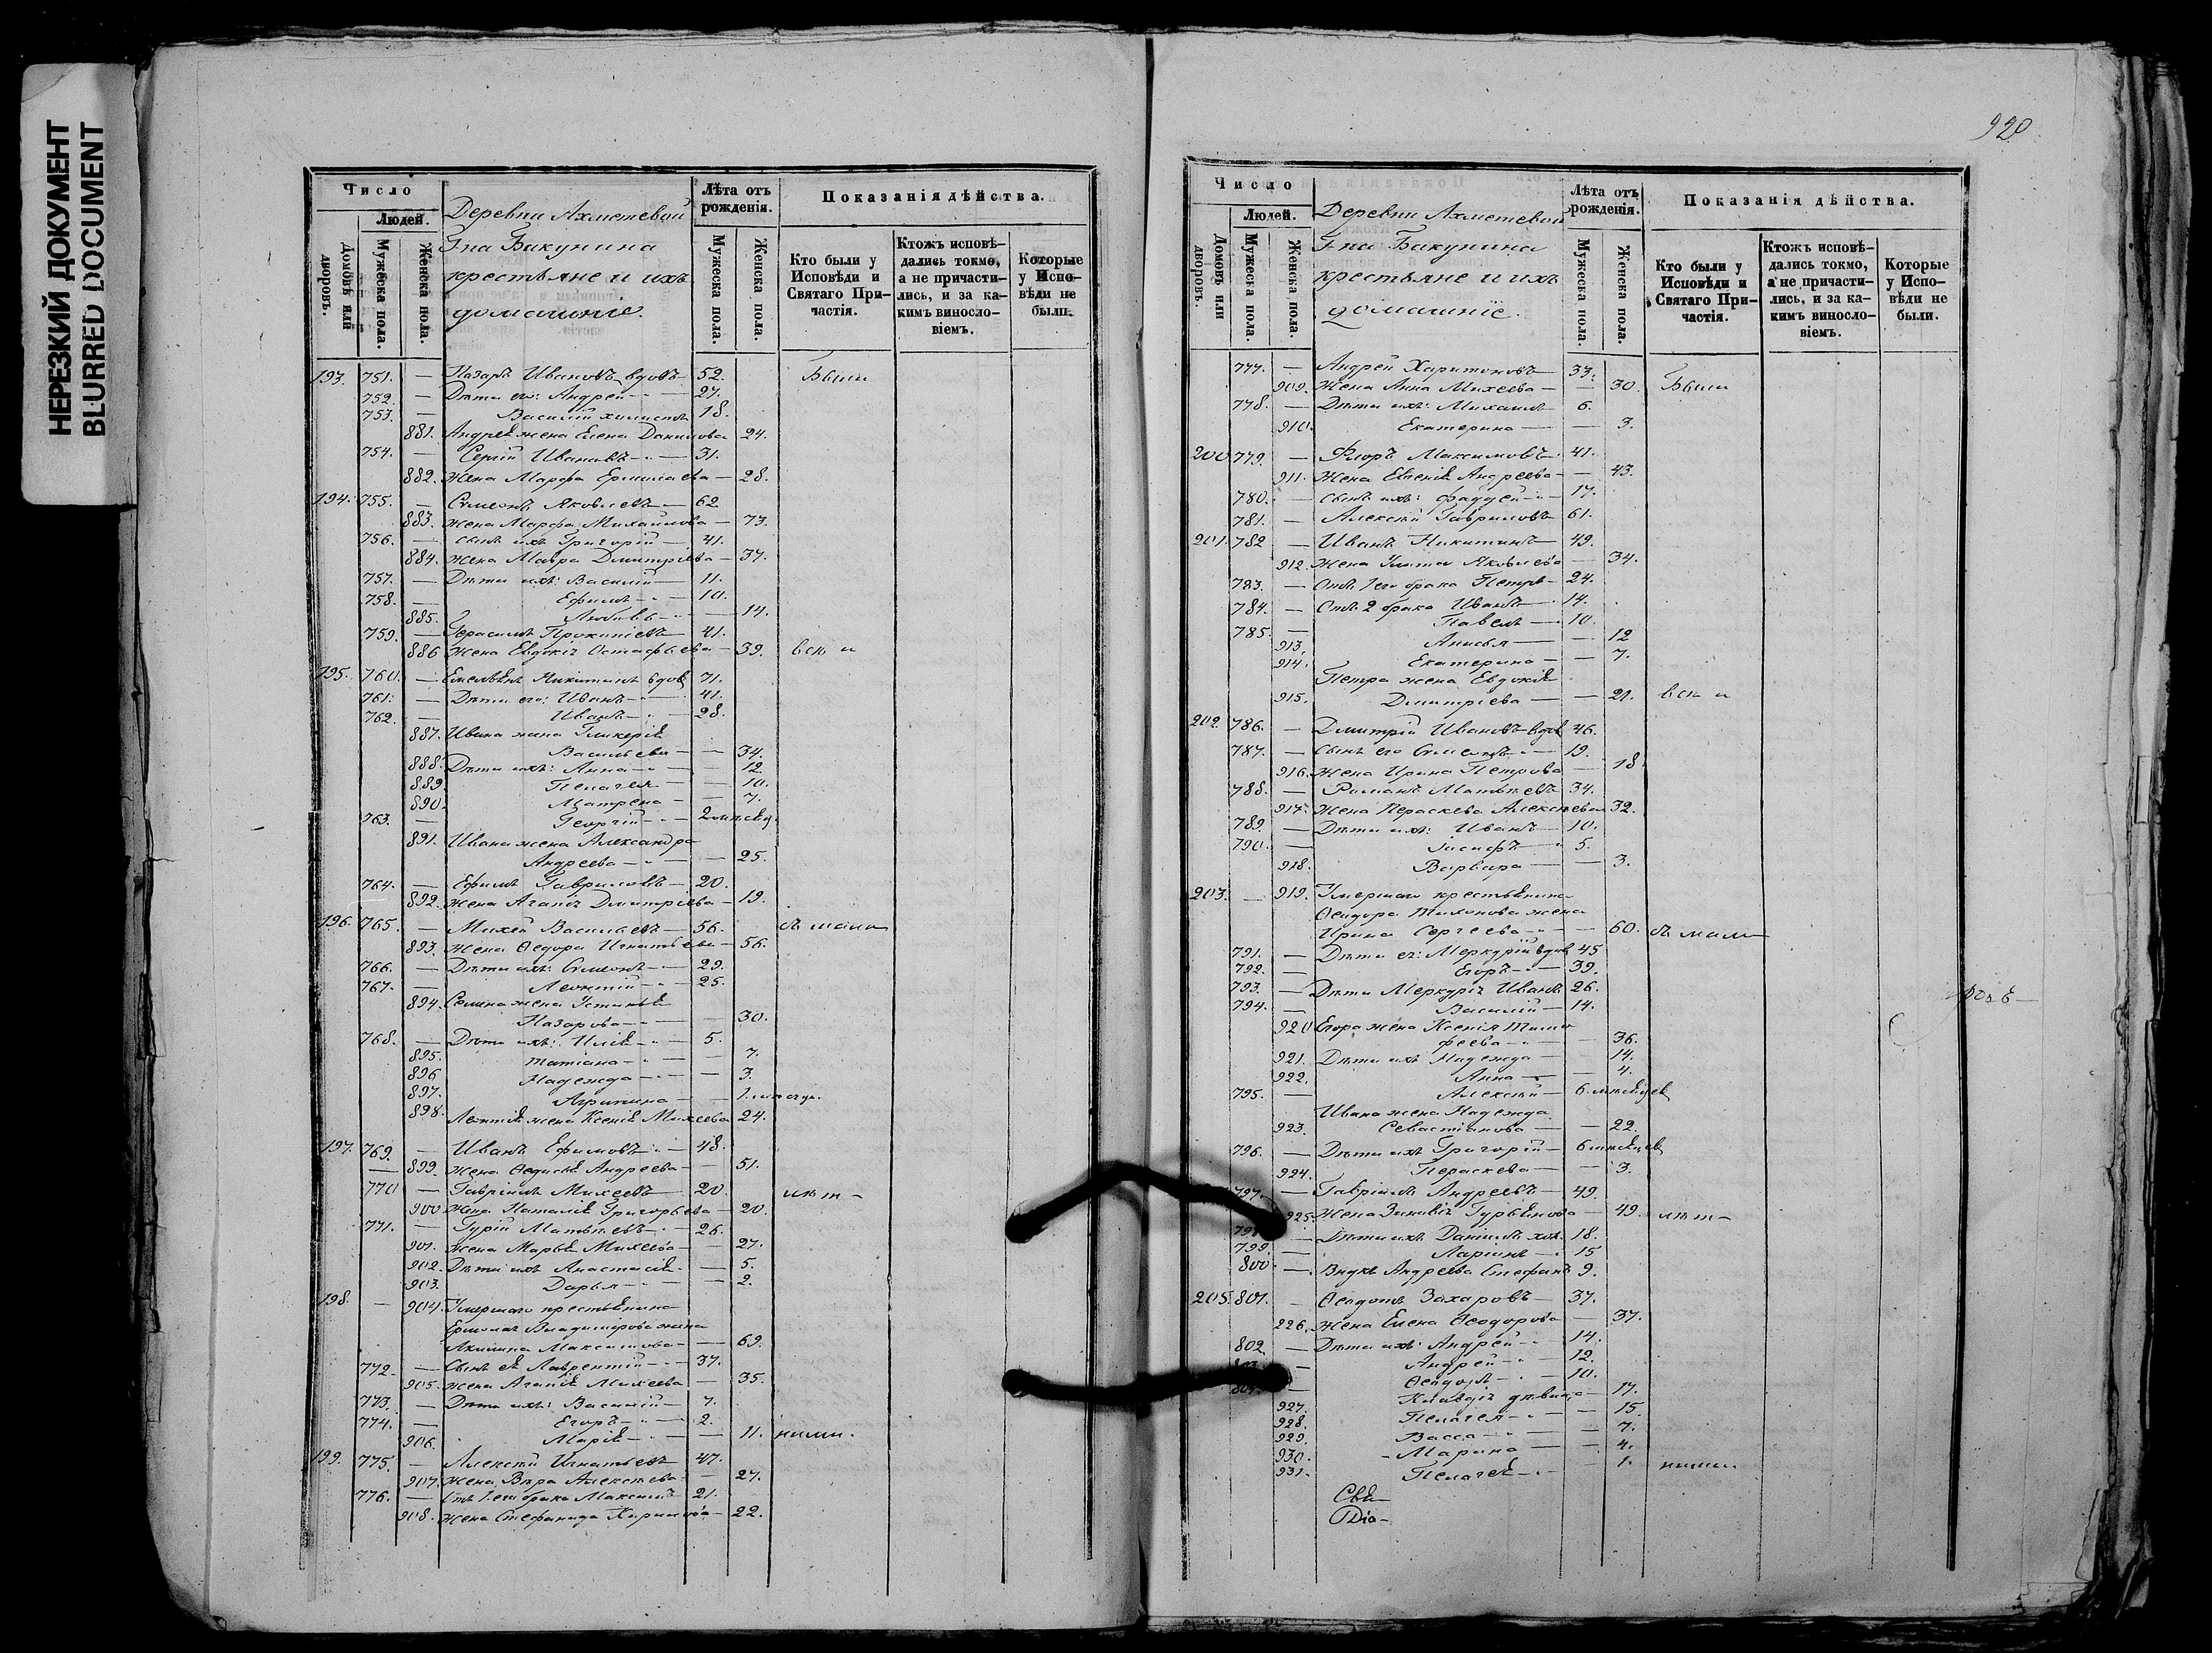 НЕРЕЗКИЙ ДОКУМЕНТ
BLURRED DOCUMENT
Число
Людей.
Домовъ или дворовъ.
Мужеска пола.
Женска пола.
Деревни Ахметевой
Г-на Бакунина
крестьяне и ихъ
домашніе.
Лѣта отъ рожденія.
Мужеска пола.
Женска пола.
Показанія дѣйства.
Кто были у Исповѣди и Святаго Причастія.
Ктожъ исповѣдались токмо, а не причастились, и за какимъ винословіемъ.
Которые у Исповѣди не были.
193. 751. — Назаръ Ивановъ вдовъ 52. Были
752. — Дѣти его: Андрей — 27.
753. — Василій холостъ 18.
881. Андрея жена Елена Данилова 24.
754. — Сергій Ивановъ — 31.
882. Жена Марфа Ермилаева — 28.
194. 755. — Симеонъ Яковлевъ — 62
883. Жена Марфа Михайлова — 73.
756. — Сынъ ихъ Григорій — 41.
884. Жена Мавра Димитріева — 37.
757. — Дѣти ихъ: Василій — 11.
758. — Ефимъ — 10.
885. Любовь — 14.
759. — Герасимъ Прокопіевъ — 41.
886 Жена Евдокія Остафьева — 39. всѣ и
195. 760. — Емельянъ Никитинъ вдов 71.
761. — Дѣти его: Иванъ — 41.
762. — Иванъ — 28.
887. Ивана жена Гликерія
Васильева — 34.
888. Дѣти ихъ: Анна — 12
889. Пелагея — 10.
890. Матрена — 7.
763. — Георгій — 2 мѣсяц.
891. Ивана жена Александра
Андреева — 25.
764. — Ефимъ Гавриловъ — 20.
892. Жена Агапія Димитріева — 19.
196. 765. — Михей Васильевъ — 56. съ мала
893. Жена Ѳедора Игнатьева — 56.
766. — Дѣти ихъ: Симеонъ — 29.
767. — Леонтій — 25.
894. Семена жена Устинья
Назарова — 30.
768. — Дѣти ихъ: Илія — 5.
895. Татіана — 7.
896 Надежда — 3.
897. Агрипина — 1. мѣсяц.
898. Леонтія жена Ксенія Михеева 24.
197. 769. — Иванъ Ефимовъ — 48.
— 899. Жена Ѳедосія Андреева — 51.
770 — Гавріилъ Михеевъ — 20. лѣт-
900 Жена Наталія Григорьева — 20.
771. — Гурій Матвѣевъ — 26.
901. Жена Марья Михеева — 27.
902. Дѣти ихъ Анастасія — 5.
903. Дарья — 2.
198. — 904. Умершаго крестьянина
Ермолая Владимірова жена
Акилина Максимова — 69.
772. — Сынъ ея Лаврентій — 37.
905. Жена Агапія Михеева — 35.
773. — Дѣти ихъ: Василій — 7.
774. — Егоръ — 2.
906. Марія — 11. ними.
199. 775. — Алексѣй Игнатьевъ 47.
907. Жена Вѣра Алексѣева — 27.
776. — Отъ 1-го брака Максимъ 21.
908. Жена Стефанида — 22.
920
Число
Людей.
Домовъ или дворовъ.
Мужеска пола.
Женска пола.
Деревни Ахметевой
Г-на Бакунина
крестьяне и ихъ
домашніе.
Лѣта отъ рожденія.
Мужеска пола.
Женска пола.
Показанія дѣйства.
Кто были у Исповѣди и Святаго Причастія.
Ктожъ исповѣдались токмо, а не причастились, и за какимъ винословіемъ.
Которые у Исповѣди не были.
777. — Андрей Харитоновъ 33.
909. Жена Анна Михеева — 30. Были
778. — Дѣти ихъ: Михаилъ 6.
910. Екатерина — 3.
200 779. — Флоръ Максимовъ 41.
911. Жена Евгенія Андреева — 43.
780. — Сынъ ихъ: Фаддей — 17.
781. — Алексѣй Гавриловъ 61.
201. 782 — Иванъ Никитинъ 49.
912. Жена Яковлева — 34.
783. — Отъ 1-го брака Петръ — 24.
784. — Отъ 2 брака Иванъ — 14.
785. — Павелъ — 10.
913. Анисья — 12
914. Екатерина — 7.
Петра жена Евдокія
915. Димитріева — 21. всѣ и
202. 786. — Дмитрій Ивановъ вдов 46.
787. — Сынъ его Симеонъ — 19.
916. Жена Ирина Петрова — 18
788. — Романъ Матвѣевъ 34.
917. Жена Пераскева Алексѣева 32.
789. — Дѣти ихъ: Иванъ — 10.
790. — Іосифъ — 5.
918. Варвара — 3.
203. — 919. Умершаго крестьянина
Ѳеодора Тихонова жена
Ирина Сергеева — 60. съ мал-
791. — Дѣти ея: Меркурій вдов 45
792. — Егоръ — 39.
793. — Дѣти Меркурія Иванъ 26.
794. — Василій — 14.
920 Егора жена Ксенія Тимо
феева — 36.
921. Дѣти ихъ Надежда — 14.
922. Анна — 4.
795. — Алексѣй — 6. мѣсяцев
Ивана жена Надежда
923. Севастіанова — 22.
796. — Дѣти ихъ Григорій — 6 мѣсяцев
924. Пераскева — 3.
797. — Гавріилъ Андреевъ — 49.
925. Жена Зиновія Гурьянова — 49. лѣт-
798 — Дѣти ихъ Даніилъ хол. 18.
799. — Ларіонъ — 15
800. — Внукъ Андреева Стефанъ 9.
205. 801. — Ѳедотъ Захаровъ — 37.
226. Жена Елена Ѳеодорова — 37.
802. — Дѣти ихъ: Андрей — 14.
803. — Андрей — 12.
804. — Ѳеодоръ — 10.
927. Клавдія дѣвица — 17.
928. Пелагея — 15.
929. Васса — 7.
930. Марина — 4.
931. Пелагея — 1. ними.
Свя-
Діа-